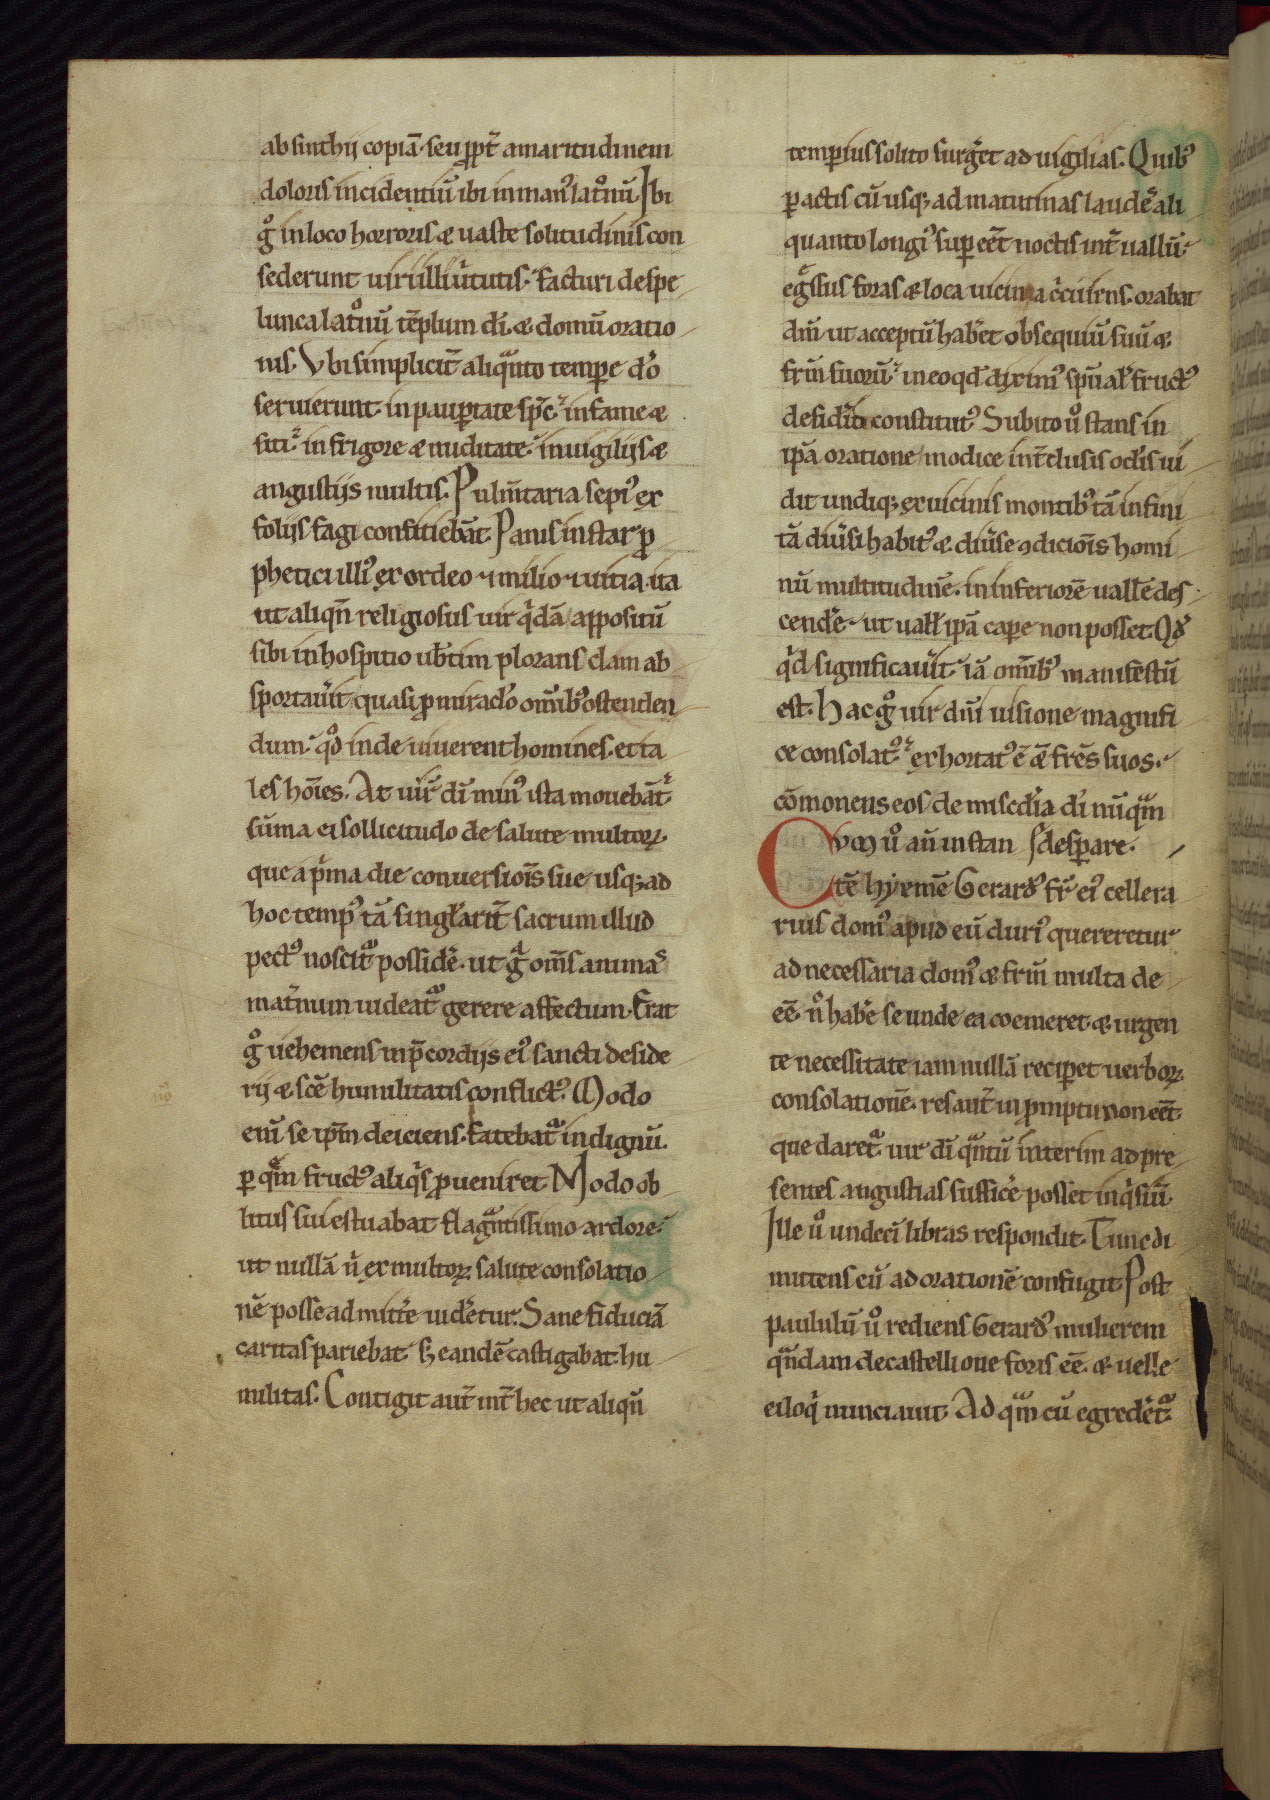 absinthij copiā· seu ꝓpt̄ amaritudinem
doloris incidentiū ibi inman᷒ latr̊nū· Ibi
g̊ in loco horroris æ uaste solitudinis con
sederunt uiri illi ū̓tutis· facturi de spe
lunca latr̊nū tēplum dī· æ domū oratio
nis· Vbi simplicit̄ aliqͣnto temꝑe dō
seruierunt in pauꝑtate sp̄c᷒· in fame æ
siti᷒· in frigore æ nuditate᷒ in uigilijs æ
angustijs multis· Pulm̄taria sepi᷒ ex
folijs fagi conficiebāt· Panis instar ꝓ
phetici illi᷒ ex ordeo ⁊ milio ⁊ uitia· ita
ut aliqn̄ religiosus uir qͥdā appositū
sibi in hospitio ub̄tim plorans clam ab
sportau̓it quasi ꝓ miraclo om̄ib᷒ ostenden
dum᷒ qđ inde uiuerent homines· et ta
les hōies· At uir̄ dī min᷒ ista mouebāt᷒·
sūma ei sollicitudo de salute multoꝝ·
que a pͥma die conuersiōis sue usqꝫ ad
hoc temp᷒ tā singłarit̄ sacrum illud
pect᷒ noscit᷒ possidē· ut gͣ om̄s animas
mat̄num uideat᷒ gerere affectum· Erat
g̊ uehemens in p̄cordijs ei᷒ sancti deside
rij æ scē humilitatis conflict᷒· Modo
enī se ip̄m deiciens· fatebat᷒ indignū·
ꝑ qͤm fruct᷒ aliqͥs ꝓueniret· Modo ob
litus sui estuabat flagͣntissimo ardore᷒
ut nullā n̄ ex multoꝝ salute consolatio
nē posse admitt̄e uidēetur· Sane fiduciā
caritas pariebat· sꝫ eandē castigabat hu
militas· Contigit aut̄ int̄ hec ut aliqn̄
temꝑius solito surḡet ad uigilias· Quib᷒
ꝑactis cū usqꝫ ad matutinas laudes ali
quanto longi᷒ suꝑeēt noctis int̄uallū᷒
eg̊ssus foras æ loca uicina cͥcuiens· orabat
dn̄m ut acceptū habēt obsequiū suū æ
fr̄m suorū᷒ in eo qd̄ diximᷤ sp̄ual᷒ fruct᷒
desidīo constitut᷒· Subito ů stans in
ip̄a oratione modice int̄clusis oclis ui
dit undiqꝫ ex uicinis montib᷒ tā infini
tā diūsi habit᷒ æ diūse ꝯdiciōis homi
nū multitudinē· in inferiorē uallē des
cendē· ut uall᷒ ip̄a caꝑe non posset· Qđ
qͥd significau̓it᷒ iā om̄ib᷒ manifestū
est· Hac g̊ uir dn̄i uisione magnifi
ce consolat᷒᷒ exhortat᷒ ē æ fr̄es suos·
cōmonens eos de misc̄dia dī nūqͣm
Cvm ů aūinstan ſ desꝑare·
tē hyemē Gerard᷒ fr̄ ei᷒ cellera
rius dom᷒ apud eū duri᷒ quereretur
ad necessaria dom᷒ æ fr̄m multa de
eē· n̊ habē se unde ea coemeret· æ urgen
te necessitate iam nullā reciꝑet uerboꝝ
consolationē· res aut̄ in ꝓmptu non eēt
que daret᷒· uir dī qͣntū interim ad pre
sentes angustias sufficē posset inqͥsiū·
Ille ů undeci libras respondit· Tunc di
mittens eū ad orationē confugit· Post
paululū ů rediens Gerard᷒ mulierem
qͣndam de castellione foris eē· æ uelle
ei loqͥ nunciauit· Ad qͣm cū egredēt᷒